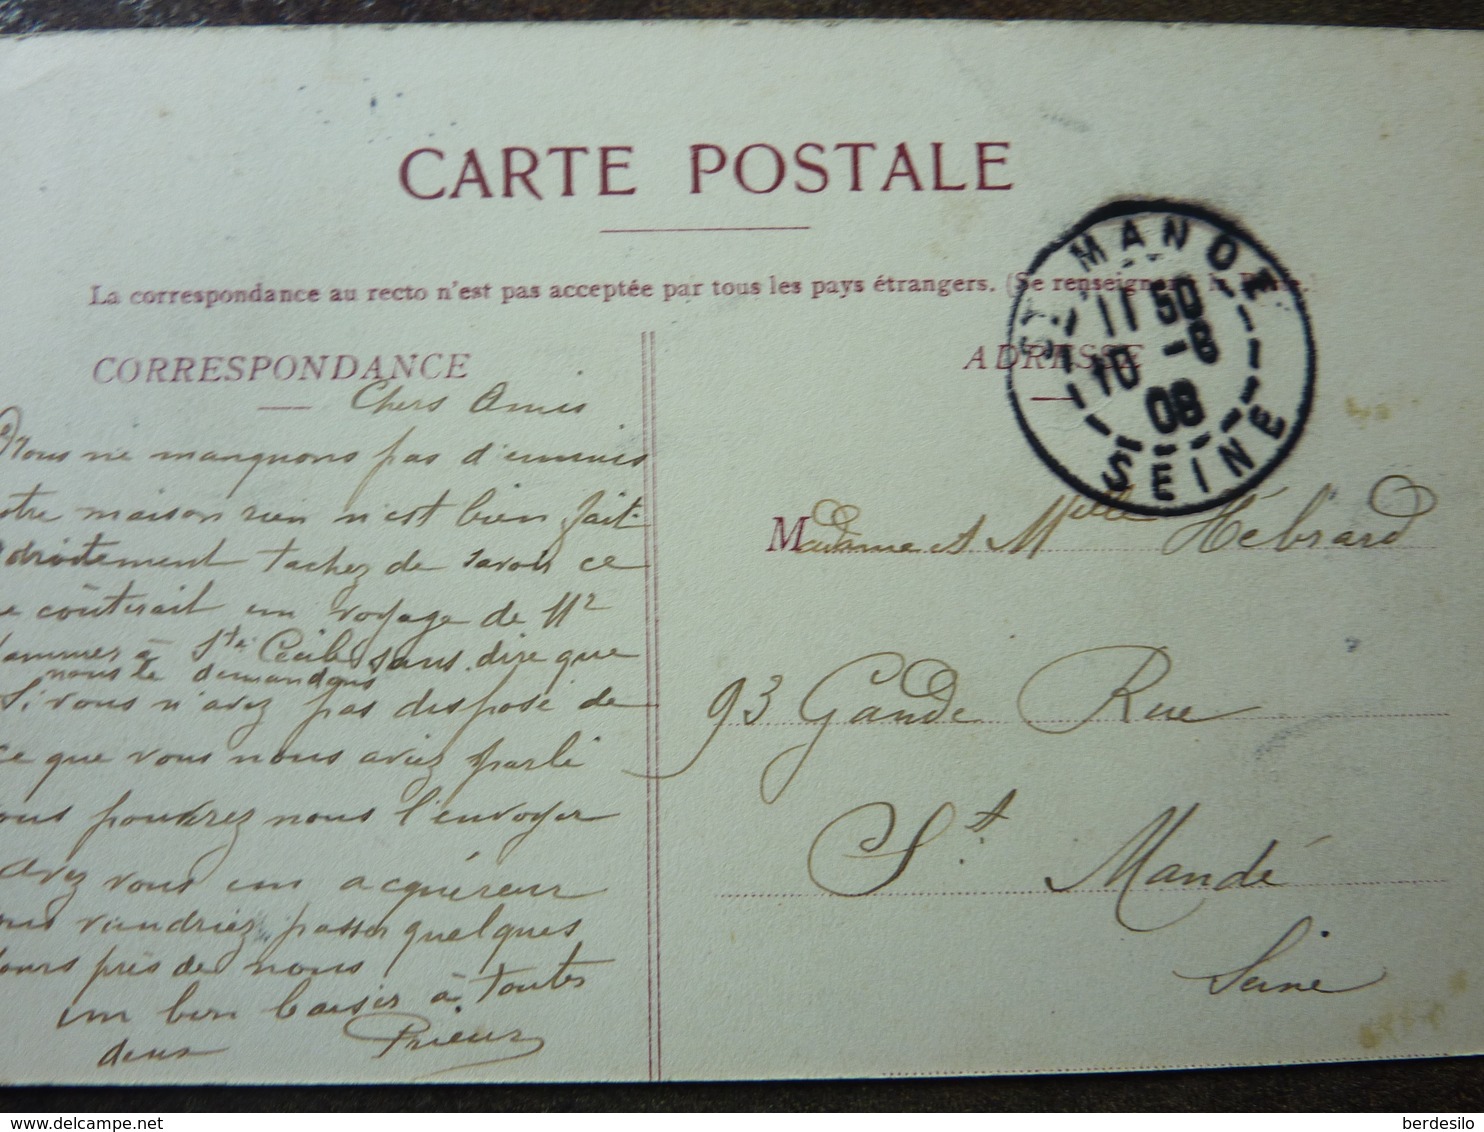 CARTE POSTALE
La correspondance au recto n'est pas acceptée par tous les pays étrangers. (Se renseigner
CORRESPONDANCE
Chers Amis
Nous ne manquons pas d'ennuis
otre maison rien n'est bien fait
adroitement tachez de savoir ce
e coûterait un voyage de Mr
à Ste Cécile sans dire que
nous le demandons
Si vous n'avez pas disposé de
ce que vous nous aviez parlé
ous pourrez nous l'envoyer
avez vous un acquéreur
ous viendriez passer quelques
jours près de nous
un bon baiser à toutes
deux Prieur
ADRESSE
Madame et Melle Hébrard
93 Gande Rue
St. Mandé
Seine
ST MANDE
11 50
10 -8
08
SEINE
berdesilo